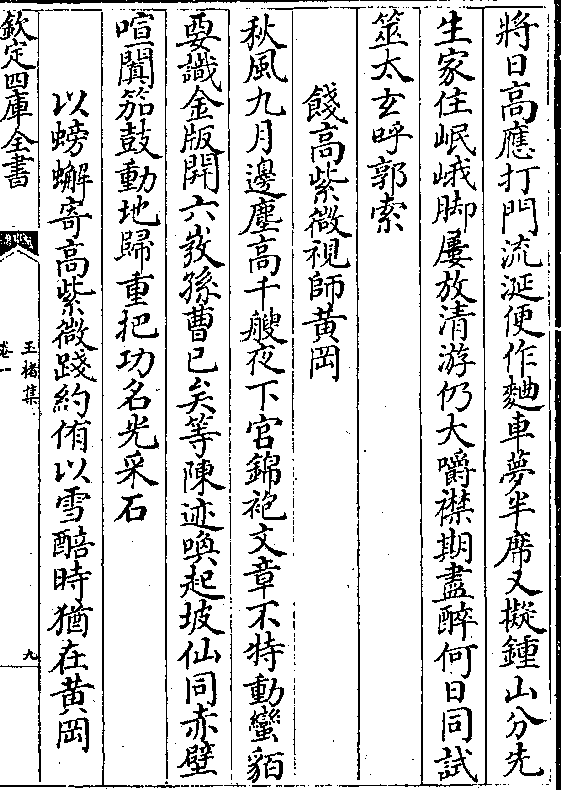 將日高應打門流涎便作麯車夢半席又擬鍾山分先
生家住岷峨脚屢放清游仍大嚼襟期盡醉何日同試
筮太玄呼郭索
餞高紫微視師黃岡
秋風九月邊塵高千艘夜下官錦袍文章不特動蠻貊
要識金版開六弢孫曹已矣等陳迹喚起坡仙同赤壁
喧闐笳鼓動地歸重把功名光采石
以螃蠏寄高紫微踐約侑以雪醅時猶在黃岡
欽定四庫全書
玉楮集
卷一
九